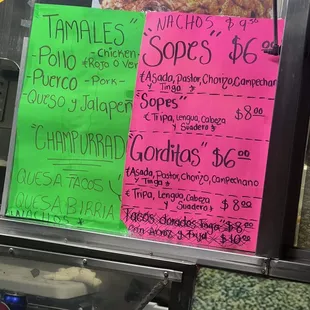 "TAMALES"
-Pollo -Chicken-
*Rojo o Ver
-Puerco -Pork-
-Queso y Jalape
"CHAMPURRAD
QUESA TACOS
QUESA BIRRIA
NACHOS
NACHOS $9.50
"Sopes" $6.00
*Asada, Pastor, Chorizo, Campechan
y Tinga*
"Sopes"
*Tripa, Lengua, Cabeza
y Suadero*
$8.00
"Gorditas" $6.00
*Asada, Pastor, Chorizo, Campechano
y Tinga*
*Tripa, Lengua, Cabeza
y Suadero* $8.00
Tacos dorados Tinga $8.00
Con Arroz y $10.00